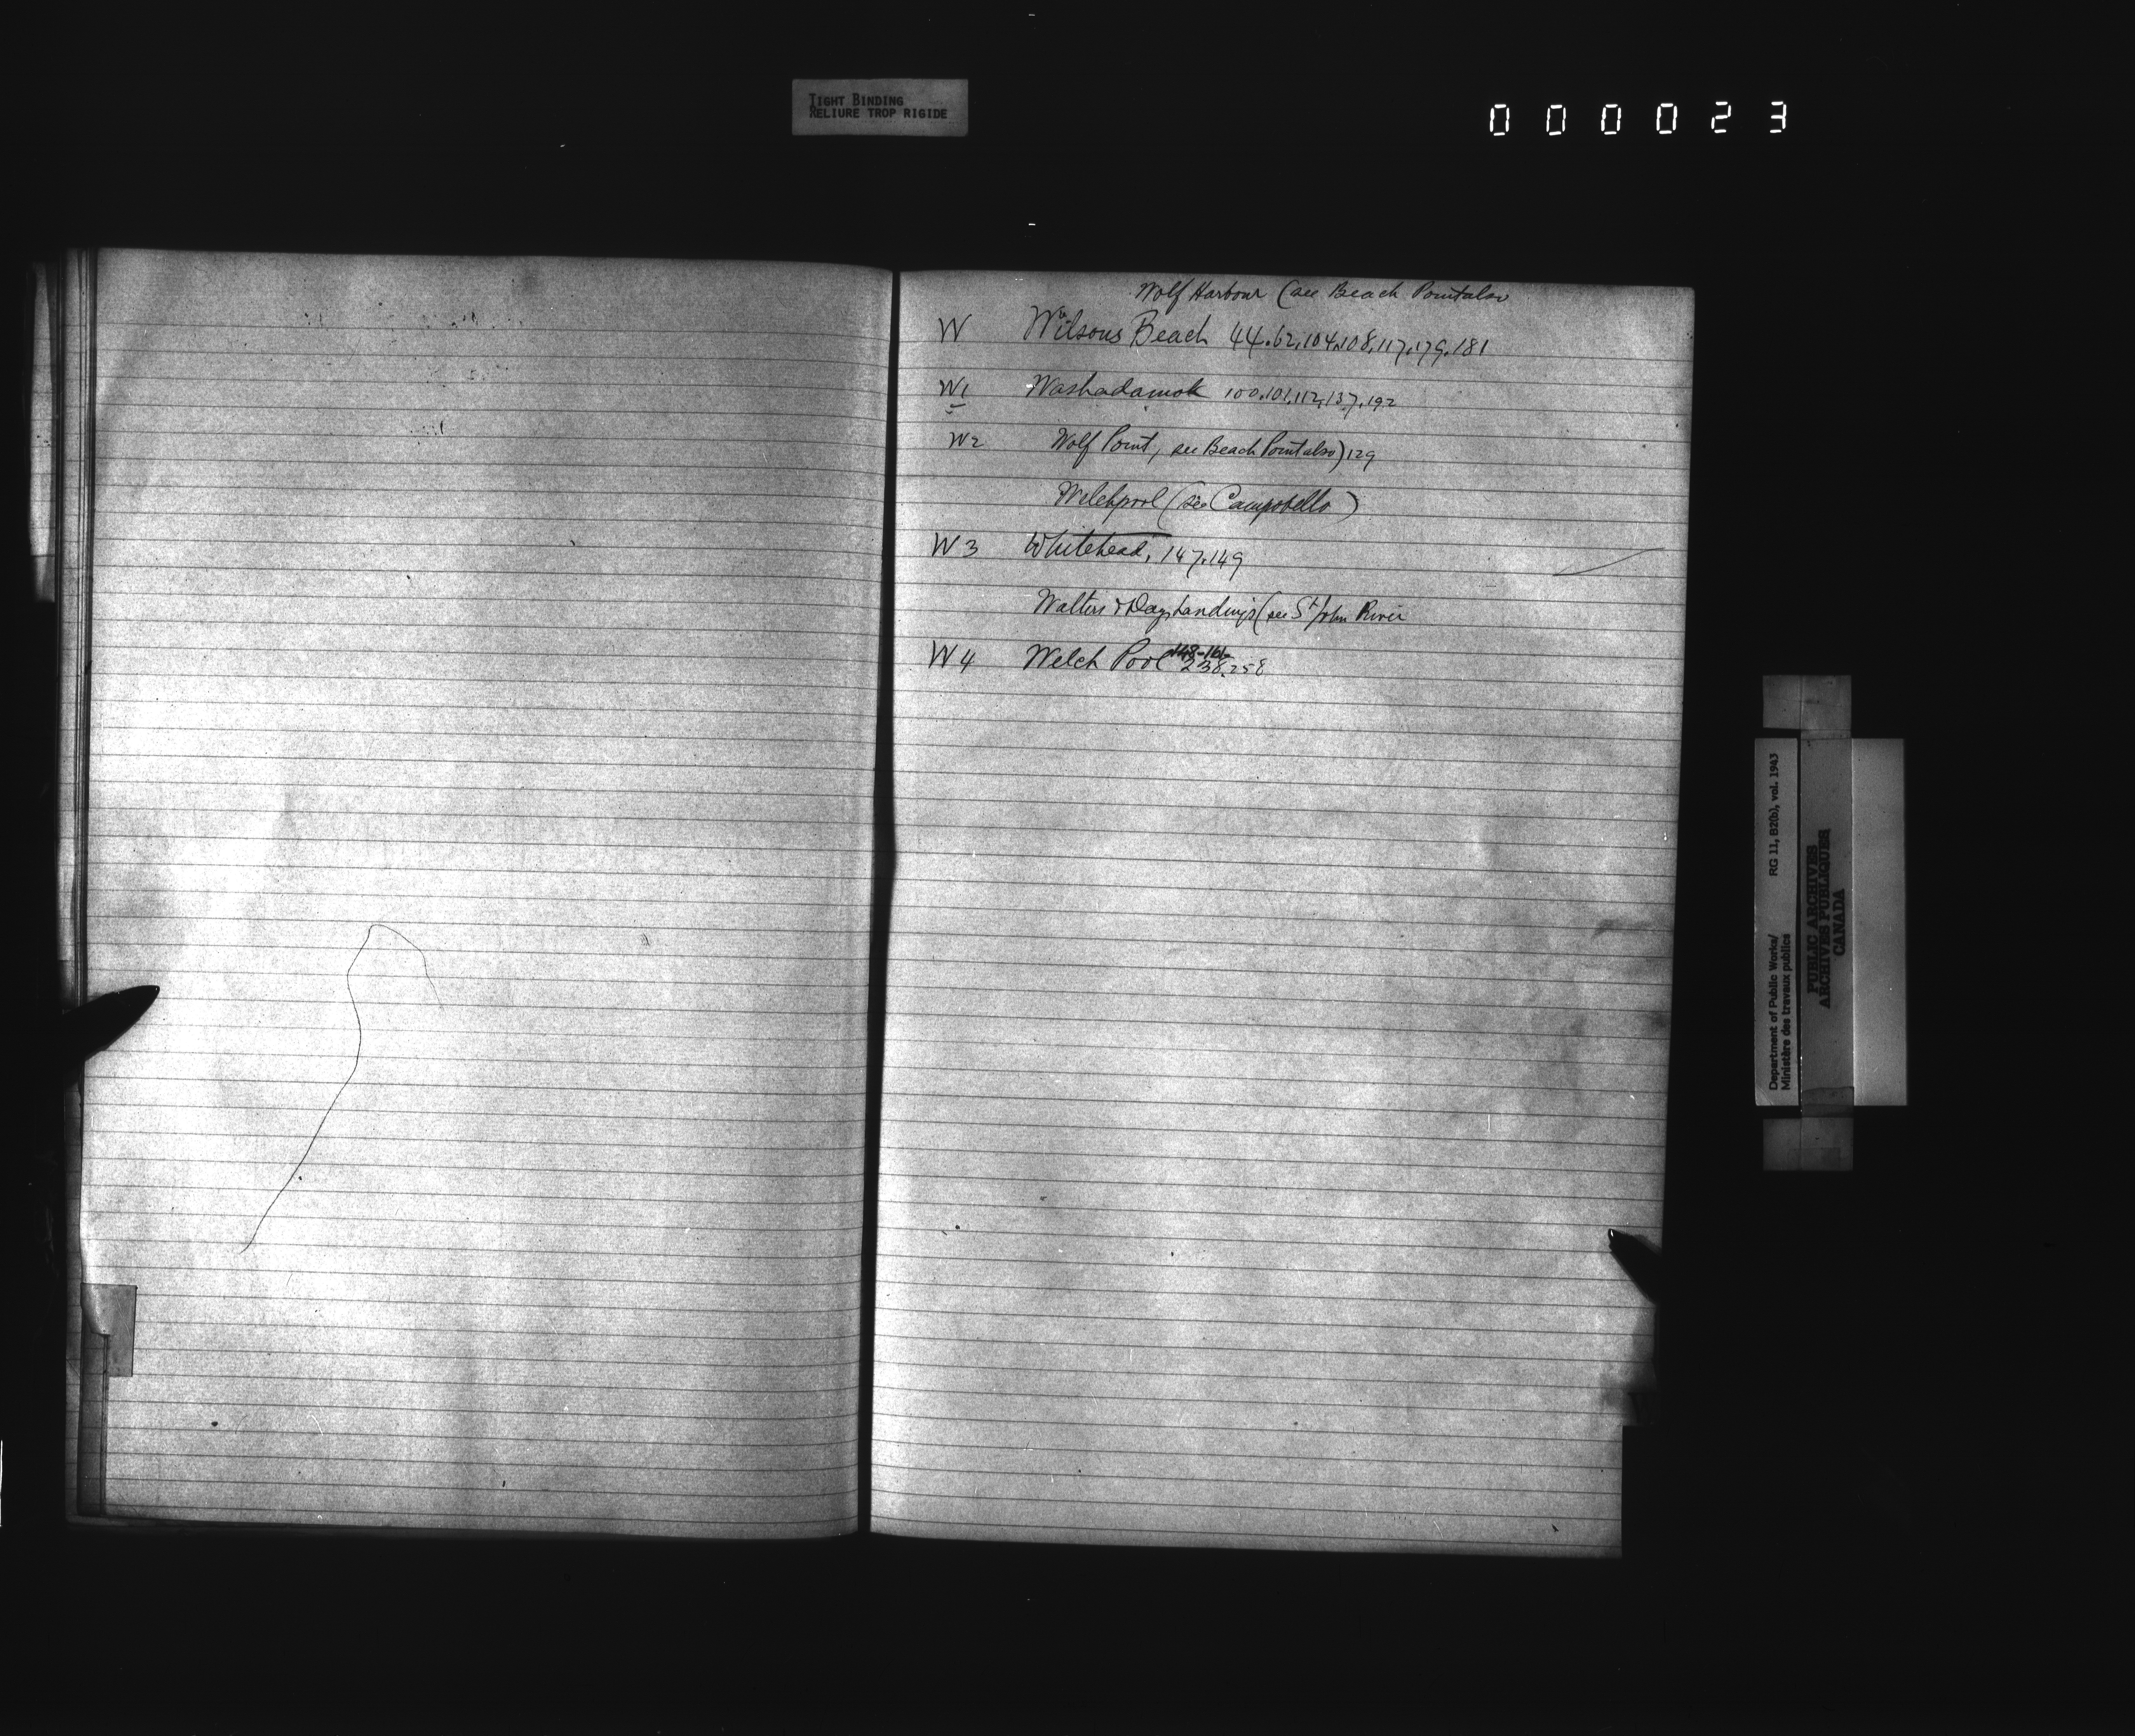 TIGHT BINDING
RELIURE TROP RIGIDE
000023
Wolf Harbour (see Beach Point also
W Wilsons Beach 44.62.104.108.117.179.181
W1 Washadamok 100.101.112.137.192
W2 Wolf Point, see Beach Point also) 129
Welchpool (see Campobello)
W3 Whitehead, 147.149
Walters & Days Landings (see St John River
W4 Welch Pool 148-161- 238.258
Department of Public Works/ RG 11, B2(b), vol. 1943
Ministère des travaux publics
PUBLIC ARCHIVES
ARCHIVES PUBLIQUES
CANADA